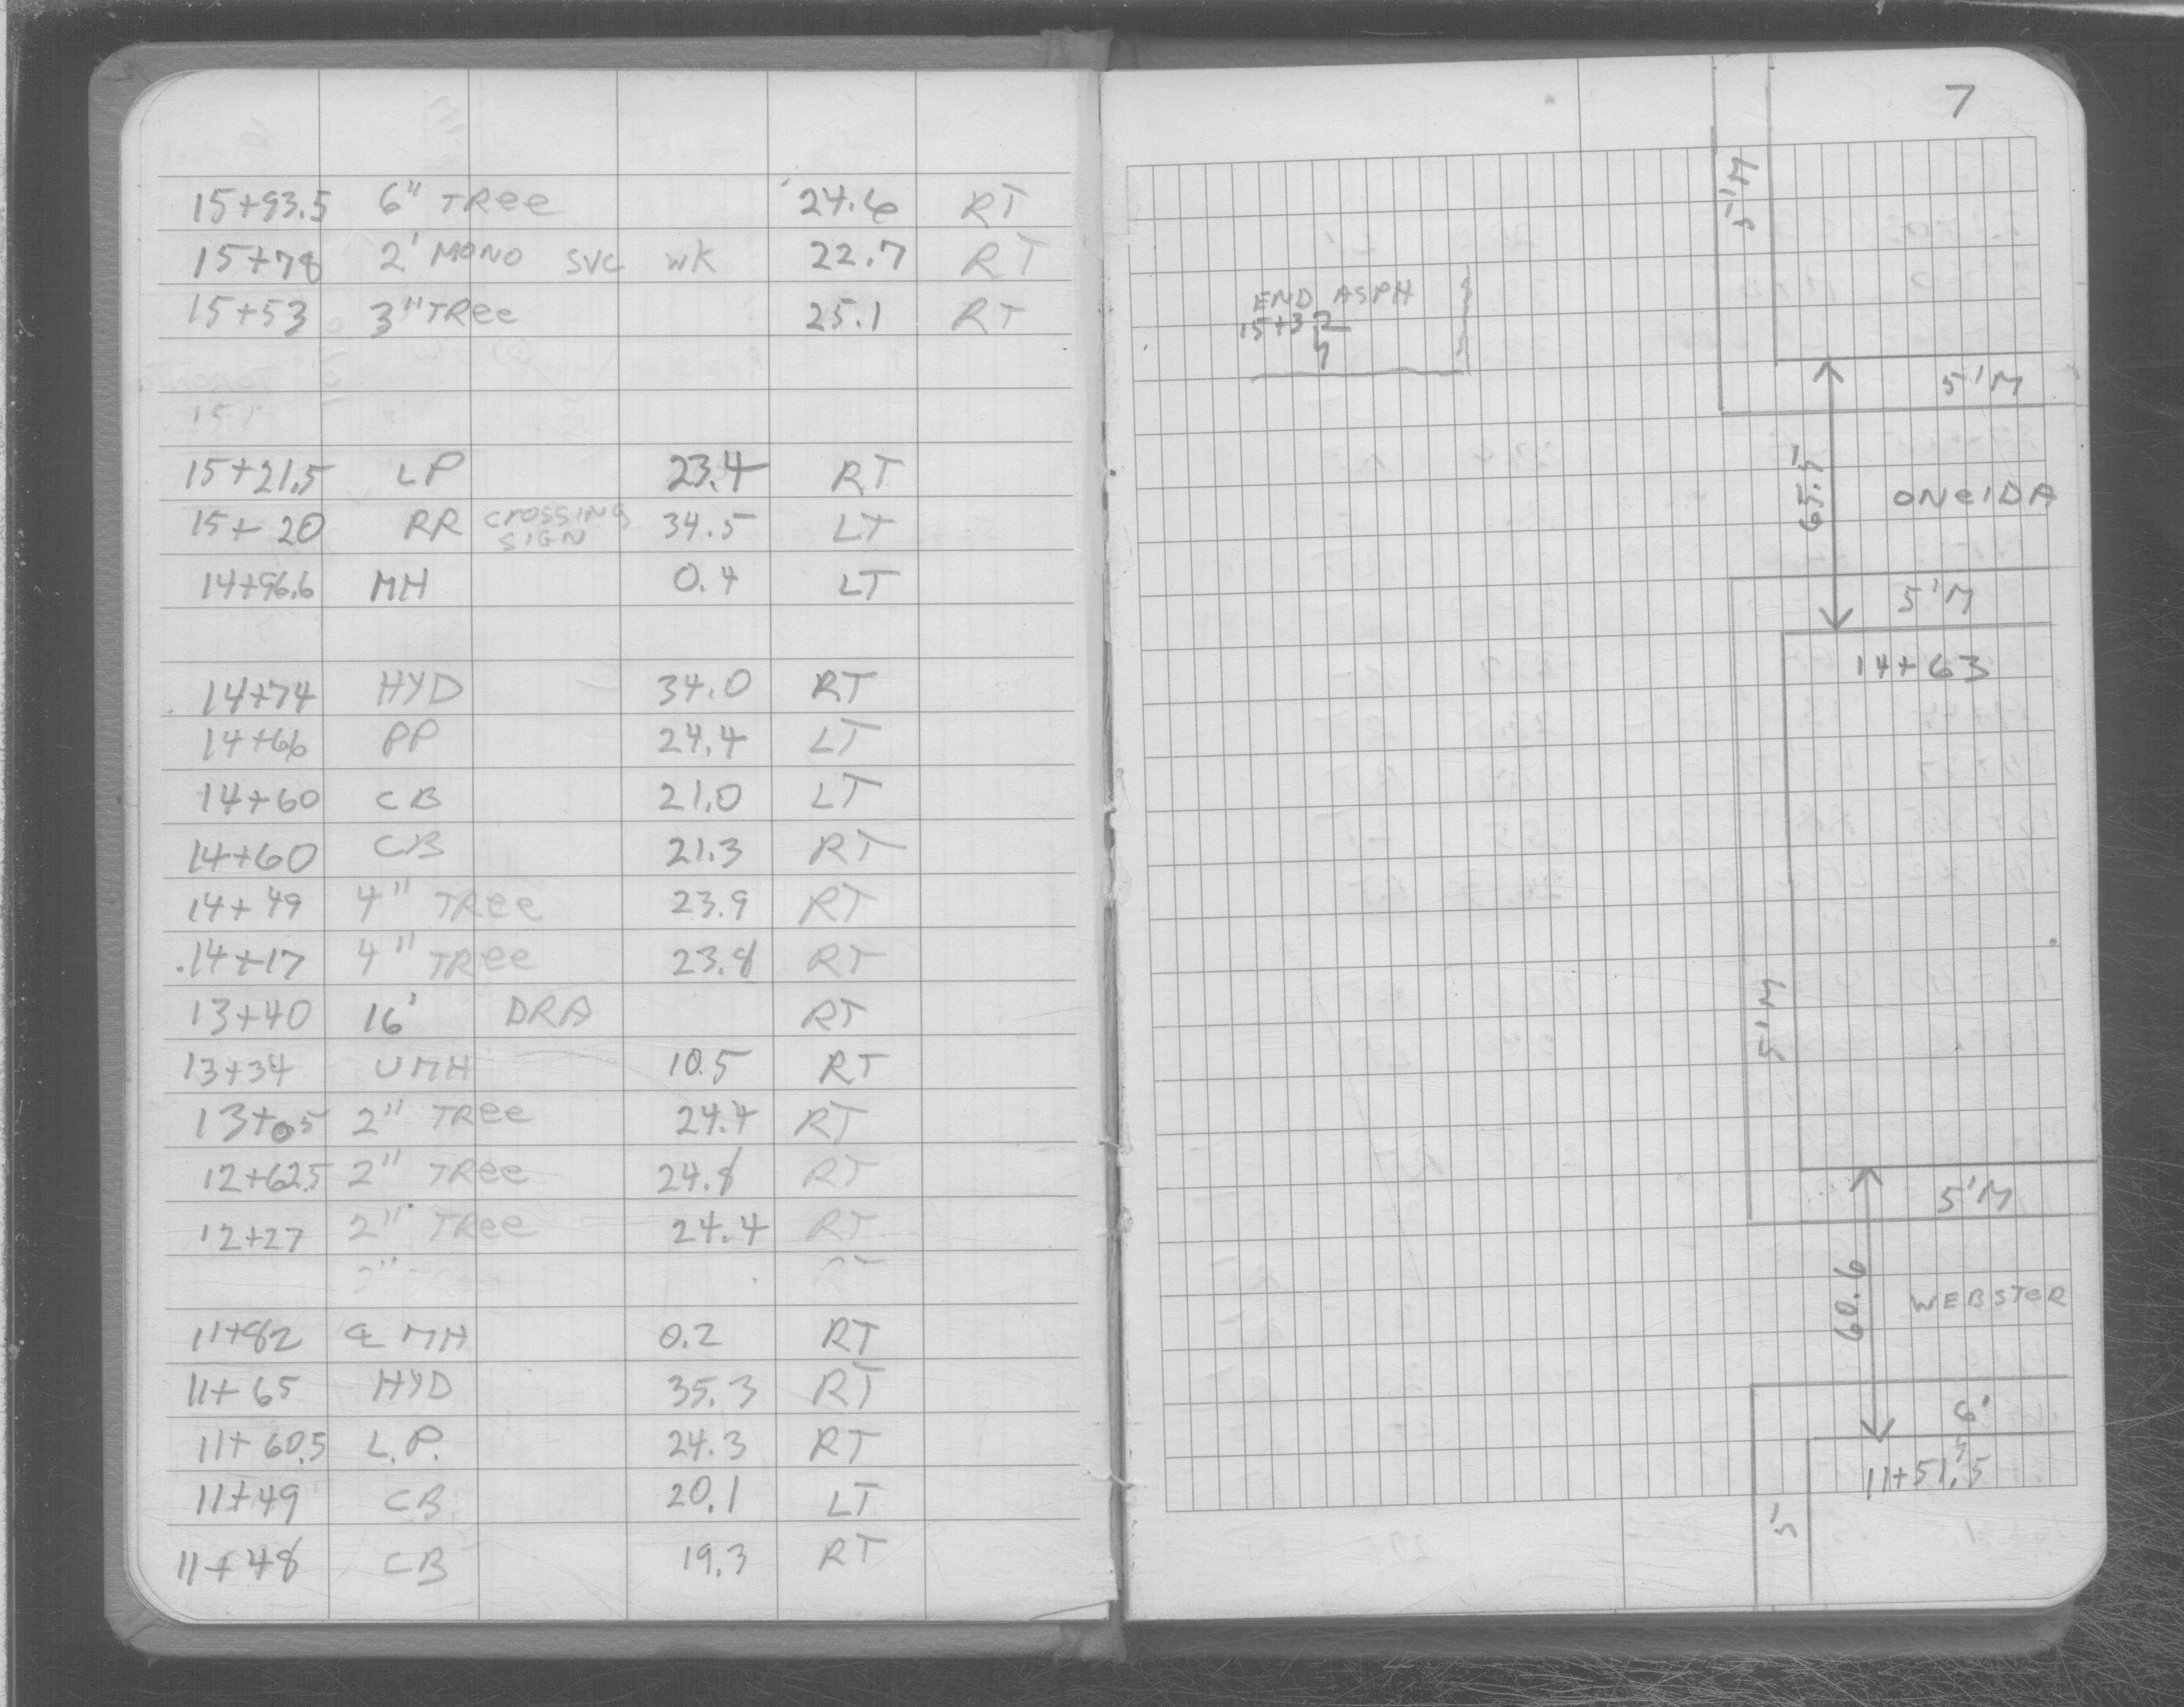 15+93.5 6" TRee 24.6 RT
15+78 2' MONO SVC WK 22.7 RT
15+53 3" TRee 25.1 RT
15+21.5 LP 23.4 RT
15+20 RR crossing SIGN 34.5 LT
14+96.6 MH 0.4 LT
14+74 HYD 34.0 RT
14+66 PP 24.4 LT
14+60 CB 21.0 LT
14+60 CB 21.3 RT
14+49 4" TRee 23.9 RT
14+17 4" TRee 23.8 RT
13+40 16' DRA RT
13+34 UMH 10.5 RT
13+05 2" TRee 24.4 RT
12+62.5 2" TRee 24.8 RT
12+27 2" TRee 24.4 RT
11+82 ℄ MH 0.2 RT
11+65 HYD 35.3 RT
11+60.5 L.P. 24.3 RT
11+49 CB 20.1 LT
11+48 CB 19.3 RT
7
5'M
END ASPH
15+32
5'M
65.5'
ONeIDA
5'M
14+63
5'M
5'M
60.6
WEBSTeR
6'
11+51.5
5'